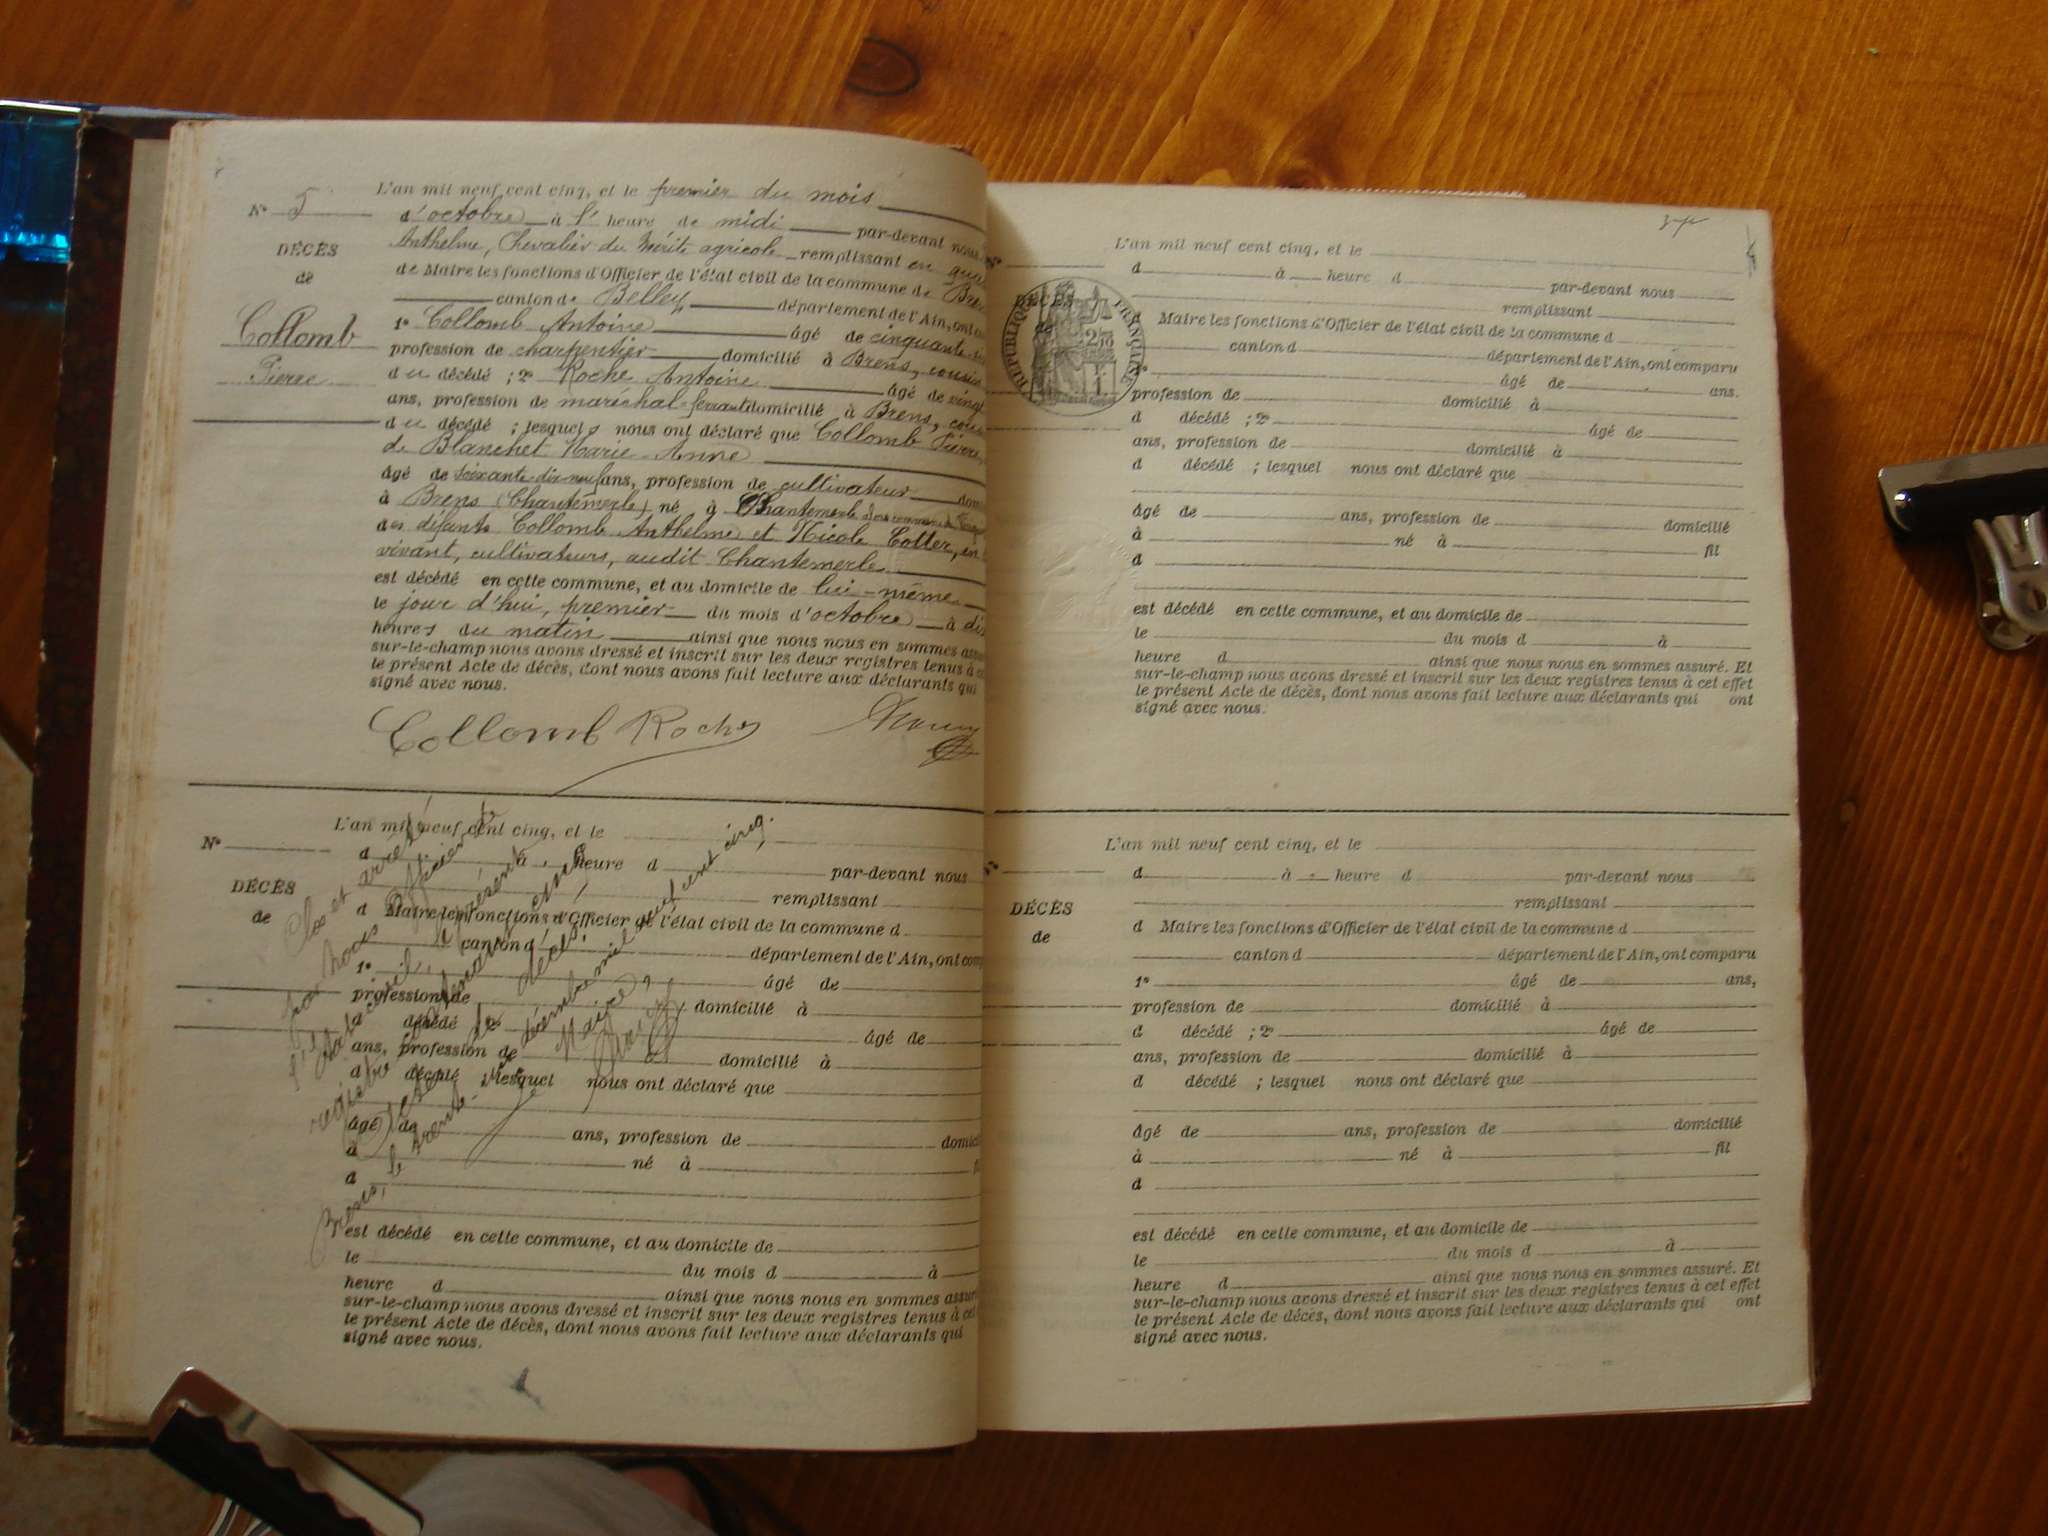 L'an mil neuf cent cinq, et le premier du mois
N° 5
d'octobre à l' heure de midi par-devant nous
Anthelme, Chevalier du Mérite agricole remplissant en
DÉCÈS
de
de Maire les fonctions d'Officier de l'état civil de la commune de
canton de Belley département de l'Ain, ont
Collomb
Pierre
1° Collomb Antoine âgé de cinquante
profession de charpentier domicilié à Brens, cousin
du décédé ; 2° Roche Antoine âgé de vingt
ans, profession de maréchal-ferrant domicilié à Brens,
du décédé ; lesquels nous ont déclaré que Collomb Pierre,
de Blanchet Marie-Anne
âgé de soixante-dix-neuf ans, profession de cultivateur
à Brens (Chantemerle) né à Chantemerle
des défunts Collomb Anthelme et Nicole Cotter, en
vivant, cultivateurs, audit Chantemerle
est décédé en cette commune, et au domicile de lui-même
le jour d'hui, premier du mois d'octobre à
heures du matin ainsi que nous nous en sommes
sur-le-champ nous avons dressé et inscrit sur les deux registres tenus à
le présent Acte de décès, dont nous avons fait lecture aux déclarants qui
signé avec nous.
Collomb Roche
L'an mil neuf cent cinq, et le
N°
d à heure d
par-devant nous
DÉCÈS
de
remplissant
d Maire les fonctions d'Officier de l'état civil de la commune d
canton d
département de l'Ain, ont
1° âgé de
profession de domicilié à
d décédé ; 2° âgé de
ans, profession de domicilié à
d décédé ; lesquel nous ont déclaré que
âgé de ans, profession de
à né à
d
est décédé en cette commune, et au domicile de
le du mois d à
heure d ainsi que nous nous en sommes
sur-le-champ nous avons dressé et inscrit sur les deux registres tenus à
le présent Acte de décès, dont nous avons fait lecture aux déclarants qui
signé avec nous.
Clos et arrêté
par Nous Officier de
l'état civil, le présent
registre
Brens, le trente décembre mil neuf cent cinq.
Le Maire,
L'an mil neuf cent cinq, et le
d à heure d
par-devant nous
remplissant
DÉCÈS
RÉPUBLIQUE FRANÇAISE
d Maire les fonctions d'Officier de l'état civil de la commune d
canton d
département de l'Ain, ont comparu
âgé de ans.
profession de domicilié à
d décédé ; 2° âgé de
ans, profession de domicilié à
d décédé ; lesquel nous ont déclaré que
âgé de ans, profession de domicilié
à né à fil
d
est décédé en cette commune, et au domicile de
le du mois d à
heure d ainsi que nous nous en sommes assuré. Et
sur-le-champ nous avons dressé et inscrit sur les deux registres tenus à cet effet
le présent Acte de décès, dont nous avons fait lecture aux déclarants qui ont
signé avec nous.
L'an mil neuf cent cinq, et le
d à heure d par-devant nous
remplissant
DÉCÈS
de
d Maire les fonctions d'Officier de l'état civil de la commune d
canton d département de l'Ain, ont comparu
1° âgé de ans,
profession de domicilié à
d décédé ; 2° âgé de
ans, profession de domicilié à
d décédé ; lesquel nous ont déclaré que
âgé de ans, profession de domicilié
à né à fil
d
est décédé en cette commune, et au domicile de
le du mois d à
heure d ainsi que nous nous en sommes assuré. Et
sur-le-champ nous avons dressé et inscrit sur les deux registres tenus à cet effet
le présent Acte de décès, dont nous avons fait lecture aux déclarants qui ont
signé avec nous.